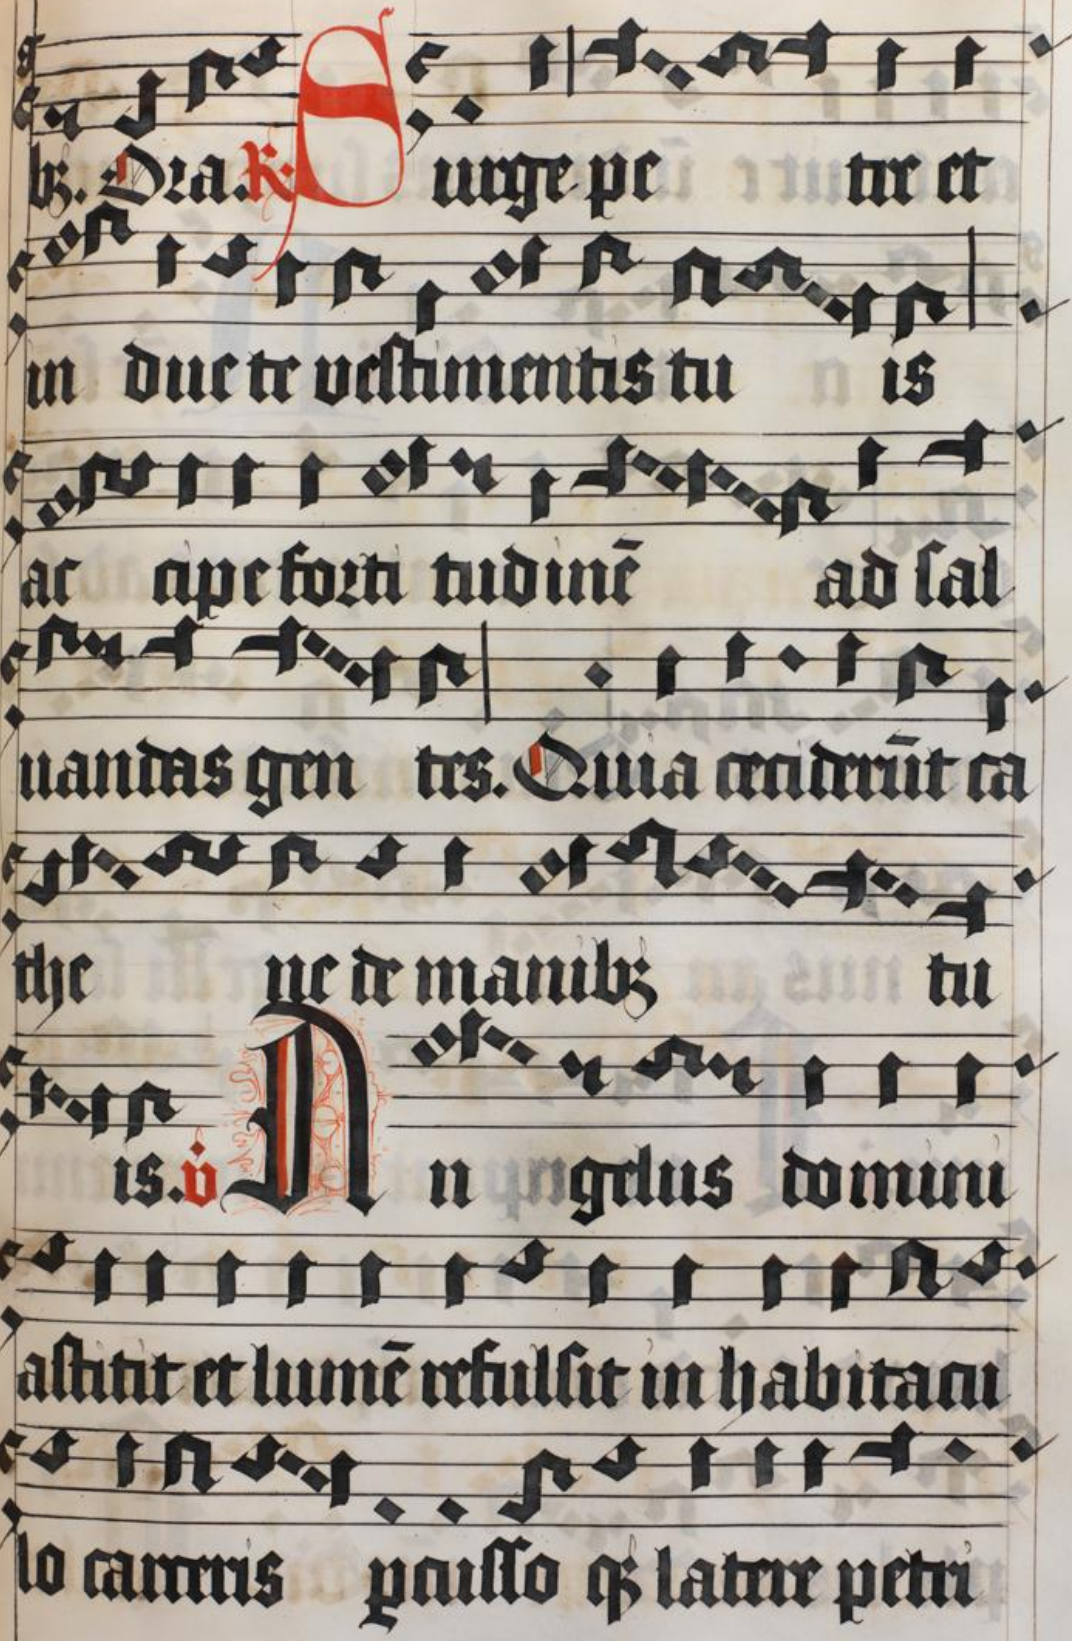 bꝫ. Ora. R: Surge pe tre et
in due te vestimentis tu is
ac cipe forti tudinē ad sal
uandas gen tes. Quia ceciderūt ca
the ne de manibꝫ tu
is. v̇ An ngelus domini
astitit et lumē refulsit in habitacu
lo carceris ꝑcusso qꝫ latere petri